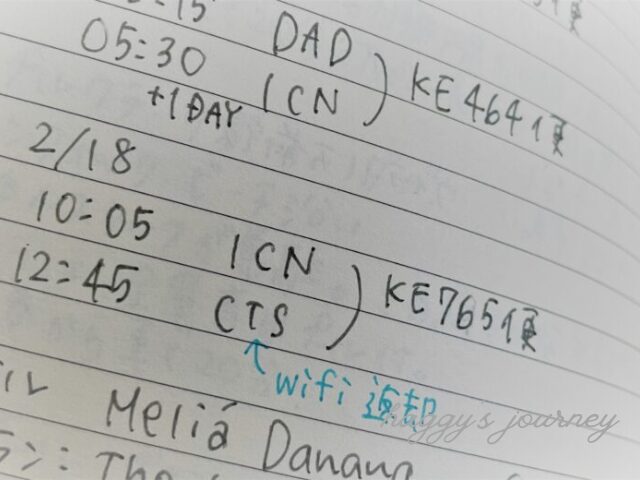 :15 DAD
05:30 ICN
+1DAY
KE464便
2/18
10:05 ICN
12:45 CTS
KE765便
↑ wifi 返却
ル Meliá Danang
The
haggy's journey